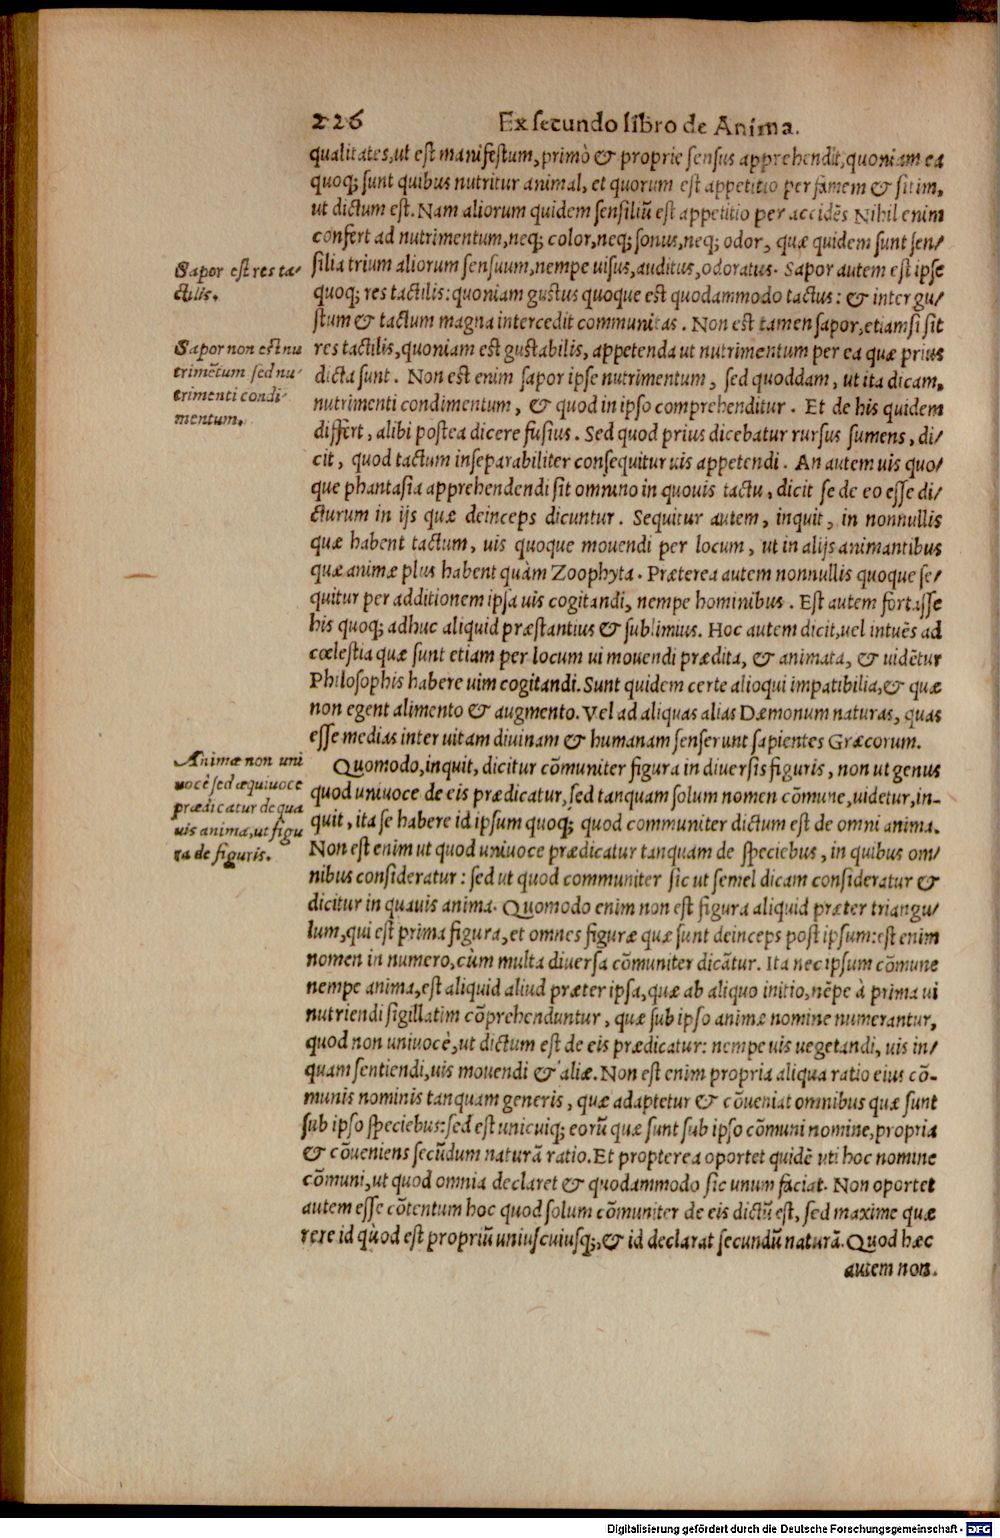 226 Ex secundo libro de Anima.
qualitates, ut est manifestum, primò & proprie sensus apprehendit, quoniam ea
quoq; sunt quibus nutritur animal, et quorum est appetitio per famem & sitim,
ut dictum est. Nam aliorum quidem sensiliũ est appetitio per accidẽs Nihil enim
confert ad nutrimentum, neq; color, neq; sonus, neq; odor, quæ quidem sunt sen/
Sapor est res ta/
ctilis.
silia trium aliorum sensuum, nempe uisus, auditus, odoratus. Sapor autem est ipse
quoq; res tactilis: quoniam gustus quoque est quodammodo tactus: & inter gu/
stum & tactum magna intercedit communitas. Non est tamen sapor, etiamsi sit
Sapor non est nu
trimẽtum sed nu/
trimenti condi/
mentum.
res tactilis, quoniam est gustabilis, appetenda ut nutrimentum per ea quæ prius
dicta sunt. Non est enim sapor ipse nutrimentum, sed quoddam, ut ita dicam,
nutrimenti condimentum, & quod in ipso comprehenditur. Et de his quidem
differt, alibi postea dicere fusius. Sed quod prius dicebatur rursus sumens, di/
cit, quod tactum inseparabiliter consequitur uis appetendi. An autem uis quo/
que phantasia apprehendendi sit omnino in quouis tactu, dicit se de eo esse di/
cturum in ijs quæ deinceps dicuntur. Sequitur autem, inquit, in nonnullis
quæ habent tactum, uis quoque mouendi per locum, ut in alijs animantibus
quæ animæ plus habent quàm Zoophyta. Præterea autem nonnullis quoque se/
quitur per additionem ipsa uis cogitandi, nempe hominibus. Est autem fortasse
his quoq; adhuc aliquid præstantius & sublimius. Hoc autem dicit, uel intuẽs ad
cœlestia quæ sunt etiam per locum ui mouendi prædita, & animata, & uidẽtur
Philosophis habere uim cogitandi. Sunt quidem certe alioqui impatibilia, & quæ
non egent alimento & augmento. Vel ad aliquas alias Dæmonum naturas, quas
esse medias inter uitam diuinam & humanam senserunt sapientes Græcorum.
Animæ non uni
uocè sed æquiuoce
prædicatur de qua
uis anima, ut figu
ra de figuris.
Quomodo, inquit, dicitur cõmuniter figura in diuersis figuris, non ut genus
quod uniuoce de eis prædicatur, sed tanquam solum nomen cõmune, uidetur, in-
quit, ita se habere id ipsum quoq; quod communiter dictum est de omni anima.
Non est enim ut quod uniuoce prædicatur tanquam de speciebus, in quibus om/
nibus consideratur: sed ut quod communiter sic ut semel dicam consideratur &
dicitur in quauis anima. Quomodo enim non est figura aliquid præter triangu/
lum, qui est prima figura, et omnes figuræ quæ sunt deinceps post ipsum: est enim
nomen in numero, cùm multa diuersa cõmuniter dicãtur. Ita nec ipsum cõmune
nempe anima, est aliquid aliud præter ipsa, quæ ab aliquo initio, nẽpe à prima ui
nutriendi sigillatim cõprehenduntur, quæ sub ipso animæ nomine numerantur,
quod non uniuocè, ut dictum est de eis prædicatur: nempe uis uegetandi, uis in/
quam sentiendi, uis mouendi & aliæ. Non est enim propria aliqua ratio eius cõ-
munis nominis tanquam generis, quæ adaptetur & cõueniat omnibus quæ sunt
sub ipso speciebus: sed est unicuiq; eorũ quæ sunt sub ipso cõmuni nomine, propria
& cõueniens secũdum naturã ratio. Et propterea oportet quidẽ uti hoc nomine
cõmuni, ut quod omnia declaret & quodammodo sic unum faciat. Non oportet
autem esse cõtentum hoc quod solum cõmuniter de eis dictũ est, sed maxime quæ
rere id quòd est propriũ uniuscuiusq;, & id declarat secundũ naturã. Quod hæc
autem non.
Digitalisierung gefördert durch die Deutsche Forschungsgemeinschaft - DFG